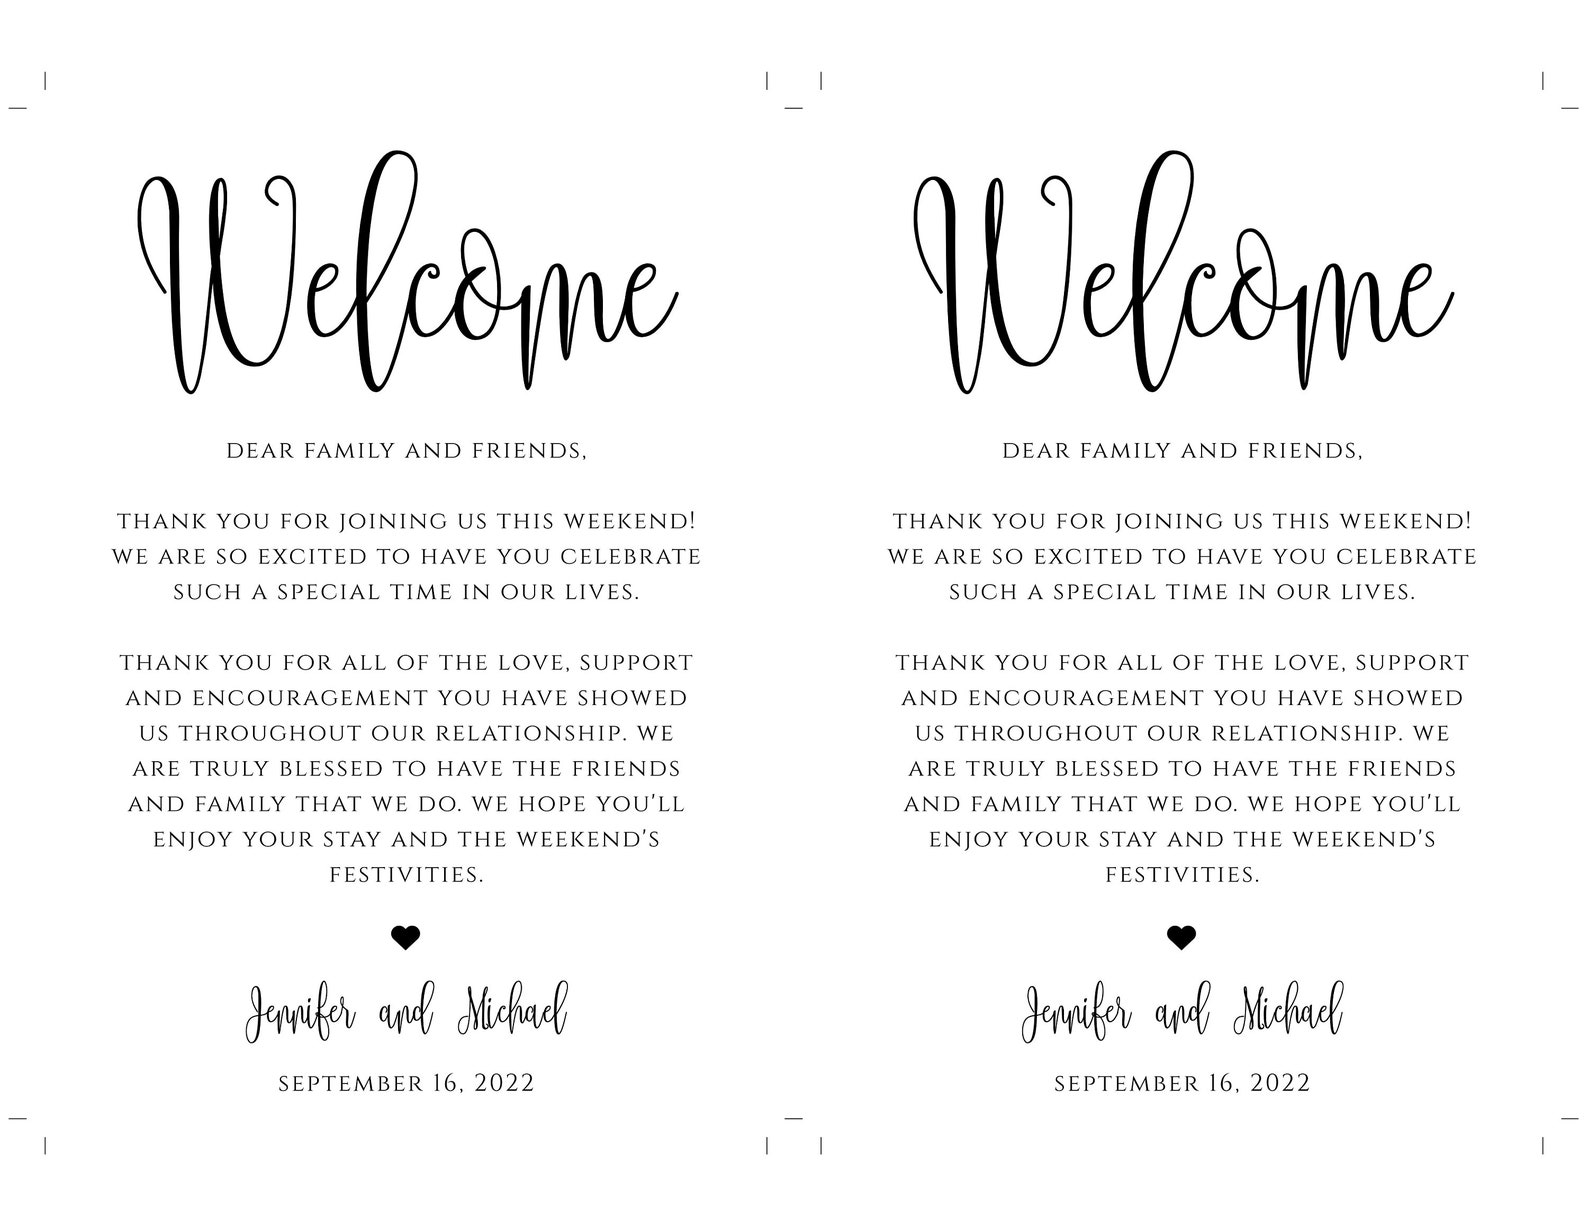 Welcome
DEAR FAMILY AND FRIENDS,
THANK YOU FOR JOINING US THIS WEEKEND!
WE ARE SO EXCITED TO HAVE YOU CELEBRATE
SUCH A SPECIAL TIME IN OUR LIVES.
THANK YOU FOR ALL OF THE LOVE, SUPPORT
AND ENCOURAGEMENT YOU HAVE SHOWED
US THROUGHOUT OUR RELATIONSHIP. WE
ARE TRULY BLESSED TO HAVE THE FRIENDS
AND FAMILY THAT WE DO. WE HOPE YOU'LL
ENJOY YOUR STAY AND THE WEEKEND'S
FESTIVITIES.
Jennifer and Michael
SEPTEMBER 16, 2022
Welcome
DEAR FAMILY AND FRIENDS,
THANK YOU FOR JOINING US THIS WEEKEND!
WE ARE SO EXCITED TO HAVE YOU CELEBRATE
SUCH A SPECIAL TIME IN OUR LIVES.
THANK YOU FOR ALL OF THE LOVE, SUPPORT
AND ENCOURAGEMENT YOU HAVE SHOWED
US THROUGHOUT OUR RELATIONSHIP. WE
ARE TRULY BLESSED TO HAVE THE FRIENDS
AND FAMILY THAT WE DO. WE HOPE YOU'LL
ENJOY YOUR STAY AND THE WEEKEND'S
FESTIVITIES.
Jennifer and Michael
SEPTEMBER 16, 2022